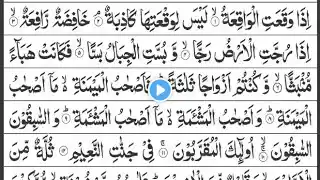 اِذَا وَقَعَتِ الْوَاقِعَةُ ۙ۱ لَيْسَ لِوَقْعَتِهَا كَاذِبَةٌ ۘ۲ خَافِضَةٌ رَّافِعَةٌ ۙ۳
اِذَا رُجَّتِ الْاَرْضُ رَجًّا ۙ۴ وَّ بُسَّتِ الْجِبَالُ بَسًّا ۙ۵ فَكَانَتْ هَبَآءً
مُّنْۢبَثًّا ۙ۶ وَّ كُنْتُمْ اَزْوَاجًا ثَلٰثَةً ؕ۷ فَاَصْحٰبُ الْمَيْمَنَةِ ۙ۬ مَاۤ اَصْحٰبُ
الْمَيْمَنَةِ ؕ۸ وَ اَصْحٰبُ الْمَشْـَٔمَةِ ۙ۬ مَاۤ اَصْحٰبُ الْمَشْـَٔمَةِ ؕ۹ وَ السّٰبِقُوْنَ
السّٰبِقُوْنَ ۚۙ۱۰ اُولٰٓئِكَ الْمُقَرَّبُوْنَ ۚ۱۱ فِيْ جَنّٰتِ النَّعِيْمِ ۱۲ ثُلَّةٌ مِّنَ